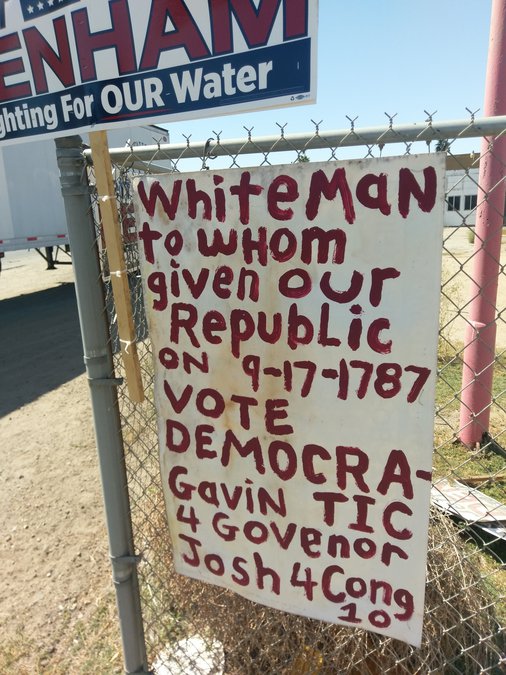 ENHAM
ghting For OUR Water
WhiteMaN
to wHOM
given OUr
Republic
ON 9-17-1787
VOTE
DEMOCRA-
TIC
Gavin
4 Govenor
Josh 4 Cong
10